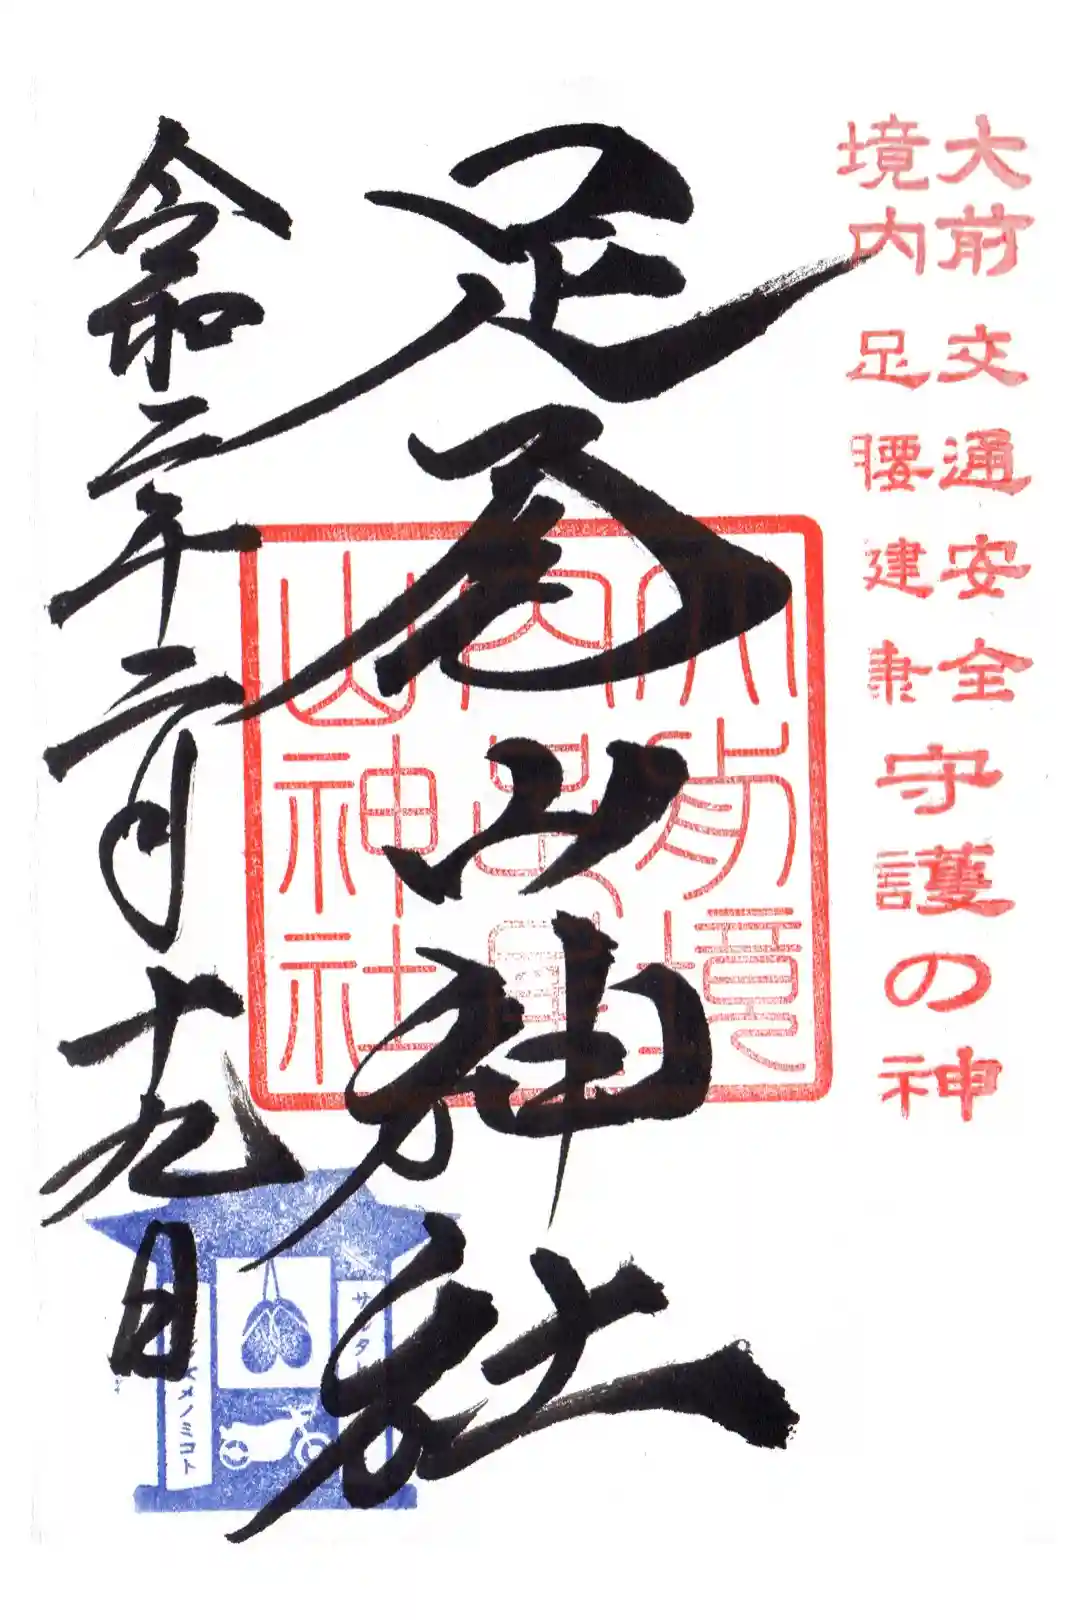 大前 交通安全
境内 足腰建康
守護の神
足尾山神社
大前境
内足尾
山神社
令和二年二月十九日
サルタ
メノミコト